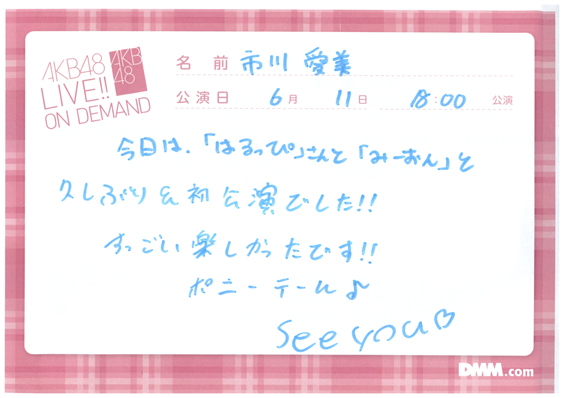 AKB48
LIVE!!
ON DEMAND
AKB
48
名前 市川 愛美
公演日 6月 11日 18:00 公演
今日は、「はるっぴ」さんと「みーおん」と
久しぶり&初公演でした!!
すっごい楽しかったです!!
ポニーテール♪
See you♡
DMM.com